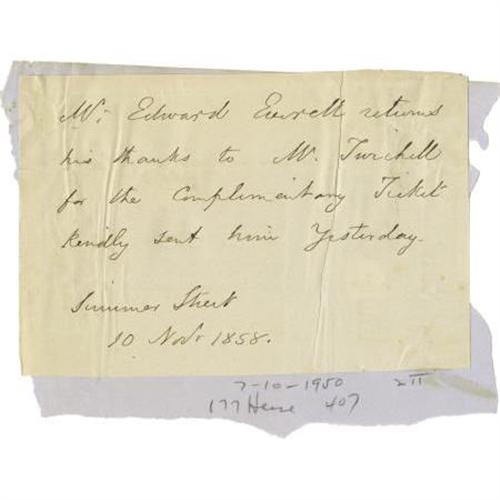 Mr. Edward Everett returns
his thanks to Mr. Twichell
for the Complimentary Ticket
kindly sent him Yesterday.
Summer Street
10 Novr 1858.
7-10-1950
177 407